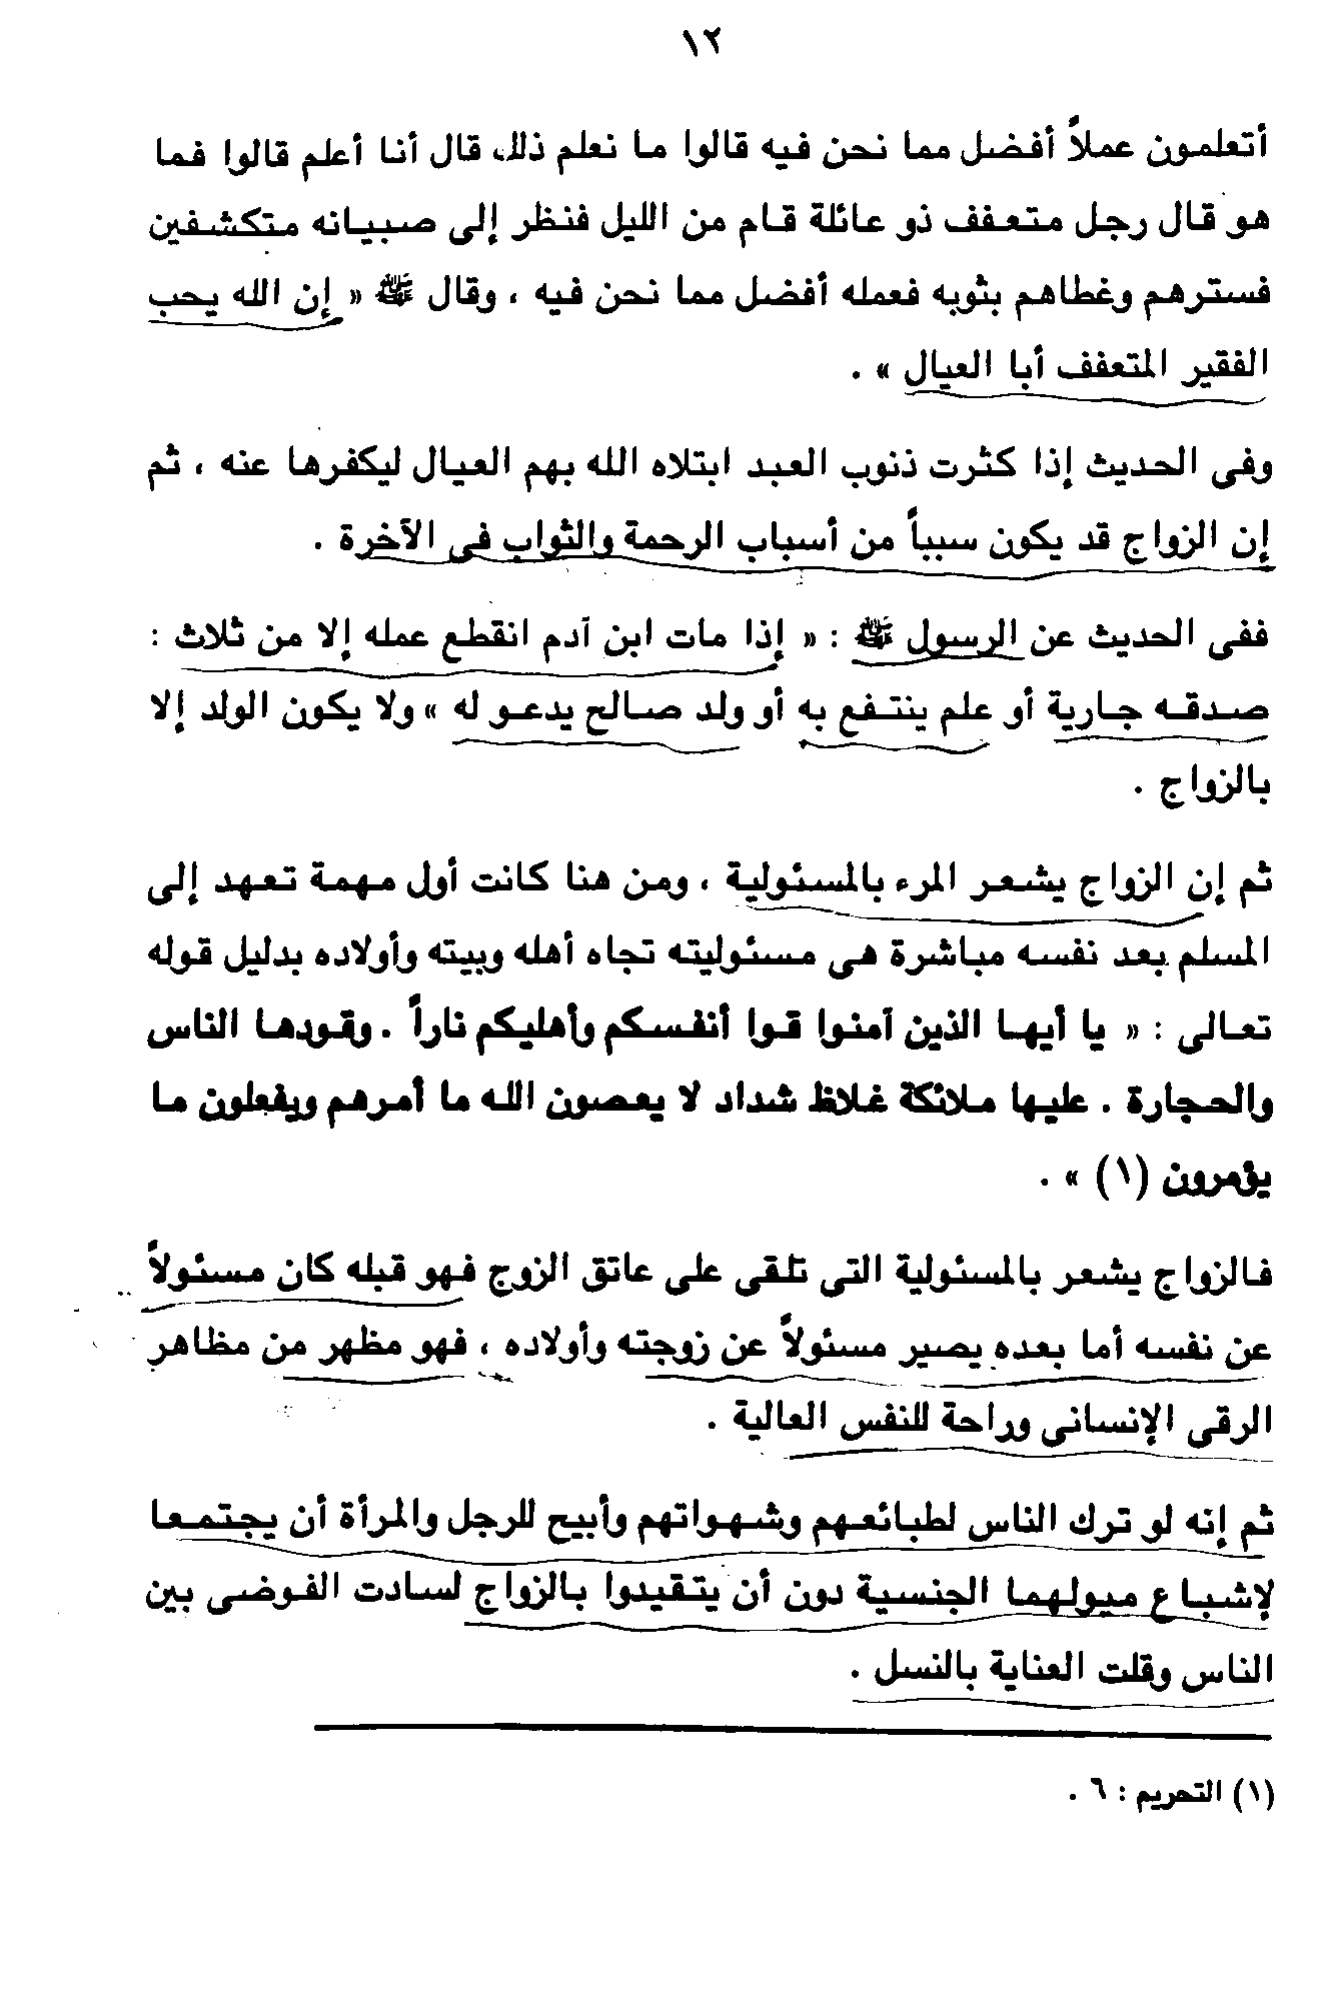 ١٢
أتعلمون عملاً أفضل مما نحن فيه قالوا ما نعلم ذلك قال أنا أعلم قالوا فما
هو قال رجل متعفف ذو عائلة قام من الليل فنظر إلى صبيانه متكشفين
فسترهم وغطاهم بثوبه فعمله أفضل مما نحن فيه ، وقال ﷺ « إن الله يحب
الفقير المتعفف أبا العيال » .
وفى الحديث إذا كثرت ذنوب العبد ابتلاه الله بهم العيال ليكفرها عنه ، ثم
إن الزواج قد يكون سبباً من أسباب الرحمة والثواب فى الآخرة .
ففى الحديث عن الرسول ﷺ : « إذا مات ابن آدم انقطع عمله إلا من ثلاث :
صدقه جارية أو علم ينتفع به أو ولد صالح يدعو له » ولا يكون الولد إلا
بالزواج .
ثم إن الزواج يشعر المرء بالمسئولية ، ومن هنا كانت أول مهمة تعهد إلى
المسلم بعد نفسه مباشرة هى مسئوليته تجاه أهله وبيته وأولاده بدليل قوله
تعالى : « يا أيها الذين آمنوا قوا أنفسكم وأهليكم ناراً . وقودها الناس
والحجارة . عليها ملائكة غلاظ شداد لا يعصون الله ما أمرهم ويفعلون ما
يؤمرون (١) » .
فالزواج يشعر بالمسئولية التى تلقى على عاتق الزوج فهو قبله كان مسئولاً
عن نفسه أما بعده يصير مسئولاً عن زوجته وأولاده ، فهو مظهر من مظاهر
الرقى الإنسانى وراحة للنفس العالية .
ثم إنه لو ترك الناس لطبائعهم وشهواتهم وأبيح للرجل والمرأة أن يجتمعا
لإشباع ميولهما الجنسية دون أن يتقيدوا بالزواج لسادت الفوضى بين
الناس وقلت العناية بالنسل .
(١) التحريم : ٦ .